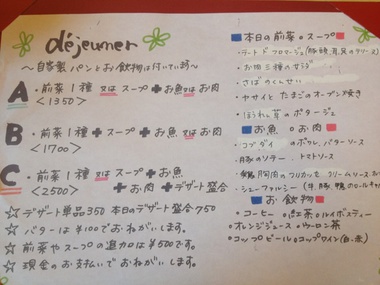 déjeuner
～自家製パンとお飲物は付いています～
A ・前菜1種 又は スープ + お魚 又は お肉
<1350>
B ・前菜1種 + スープ + お魚 又は お肉
<1700>
C ・前菜1種 又は スープ + お魚
<2500> + お肉 + デザート盛合
☆ デザート単品350 本日のデザート盛合750
☆ バターは¥100でおねがいします。
☆ 前菜やスープの追加は¥500です。
☆ 現金のお支払いでおねがいします。
本日の前菜 スープ
・テートドフロマージュ(豚頭、耳、舌のテリーヌ)
・お肉三種の
・さばのくんせい
・ヤサイと たまごのオーブン焼き
・ほうれん草のポタージュ
お魚 お肉
・コブダイ のポワレ バターソース
・豚のソテー トマトソース
・鶏胸肉のフリカッセ クリームソース
・シューファルシー(牛、豚、鴨のロールキャ
お飲物
・コーヒー ・紅茶 ・ルイボスティー
・オレンジジュース ・ウーロン茶
・コップビール ・コップワイン(白、赤)